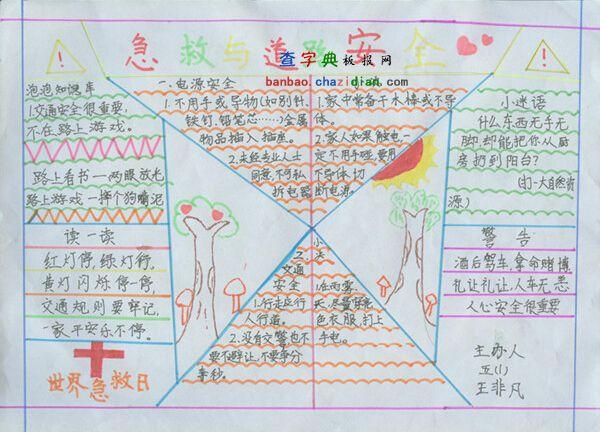 急救与道路安全
查字典板报网
banbao.chazidian.com
泡泡知识库
1.交通安全很重要,
不在路上游戏。
路上看书一两眼放光
路上游戏一摔个狗嘴泥
读一读
红灯停,绿灯行,
黄灯闪烁停一停,
交通规则要牢记,
一家平安乐不停。
世界急救日
一.电源安全
1.不用手或导物(如别针,
铁钉,铅笔芯……)金属
物品插入插座。
2.未经专业人士
同意,不可私
拆电器
1.家中常备干木棒或不导
体。
2.家人如果触电一
定不用手碰,要用
不导体,切
断电源。
二.
交通
安全
1.行走应行
人行道。
2.没有交警也不
要不避让,不要争分
夺秒。
小
法
1.在雨雾
天,尽量穿亮
色衣服,打上
手电。
小迷语
什么东西无手无
脚,却能把你从厨
房扔到阳台?
(打一大自然资
源)
警告
酒后驾车,拿命赌博,
礼让礼让,人车无恙
人心安全很重要
主办人
五(1)
王非凡